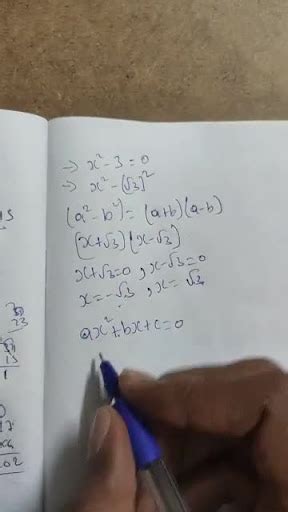 → x² - 3 = 0
→ x² - (√3)²
(a² - b²) = (a+b)(a-b)
(x+√3)(x-√3)
x+√3=0, x-√3=0
x=-√3, x= √3
ax²+bx+c=0
23
13
1
202